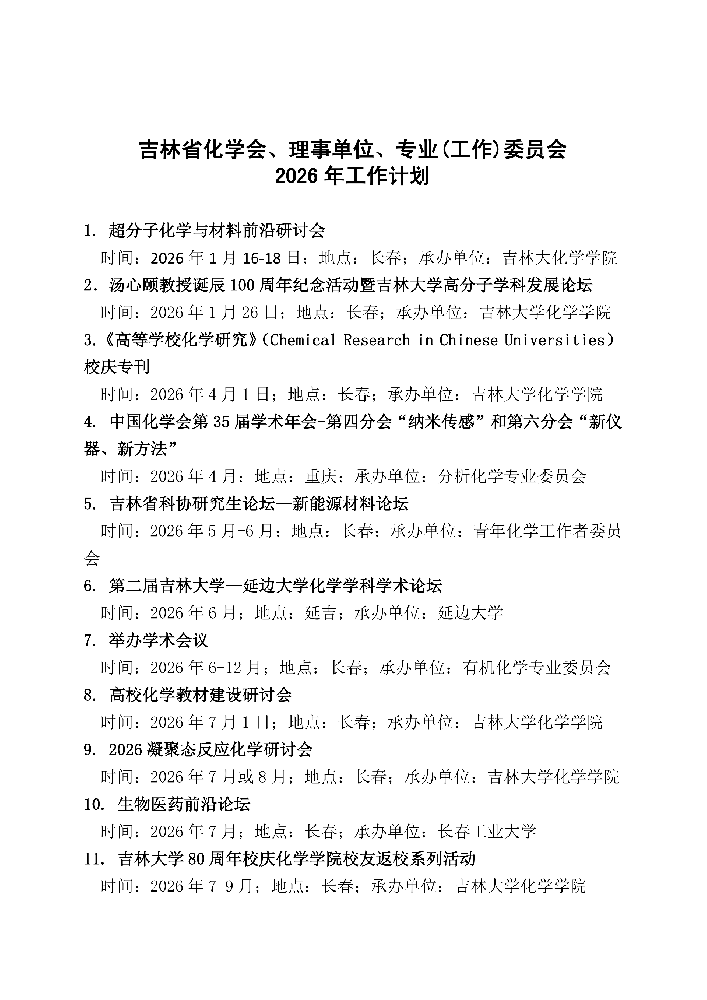 吉林省化学会、理事单位、专业(工作)委员会
2026 年工作计划
1. 超分子化学与材料前沿研讨会
时间：2026 年 1 月 16-18 日；地点：长春；承办单位：吉林大化学学院
2. 汤心颐教授诞辰 100 周年纪念活动暨吉林大学高分子学科发展论坛
时间：2026 年 1 月 26 日；地点：长春；承办单位：吉林大学化学学院
3.《高等学校化学研究》（Chemical Research in Chinese Universities）
校庆专刊
时间：2026 年 4 月 1 日；地点：长春；承办单位：吉林大学化学学院
4. 中国化学会第 35 届学术年会-第四分会“纳米传感”和第六分会“新仪
器、新方法”
时间：2026 年 4 月；地点：重庆；承办单位：分析化学专业委员会
5. 吉林省科协研究生论坛—新能源材料论坛
时间：2026 年 5 月-6 月；地点：长春；承办单位：青年化学工作者委员
会
6. 第二届吉林大学—延边大学化学学科学术论坛
时间：2026 年 6 月；地点：延吉；承办单位：延边大学
7. 举办学术会议
时间：2026 年 6-12 月；地点：长春；承办单位：有机化学专业委员会
8. 高校化学教材建设研讨会
时间：2026 年 7 月 1 日；地点：长春；承办单位：吉林大学化学学院
9. 2026 凝聚态反应化学研讨会
时间：2026 年 7 月或 8 月；地点：长春；承办单位：吉林大学化学学院
10. 生物医药前沿论坛
时间：2026 年 7 月；地点：长春；承办单位：长春工业大学
11. 吉林大学 80 周年校庆化学学院校友返校系列活动
时间：2026 年 7-9 月；地点：长春；承办单位：吉林大学化学学院